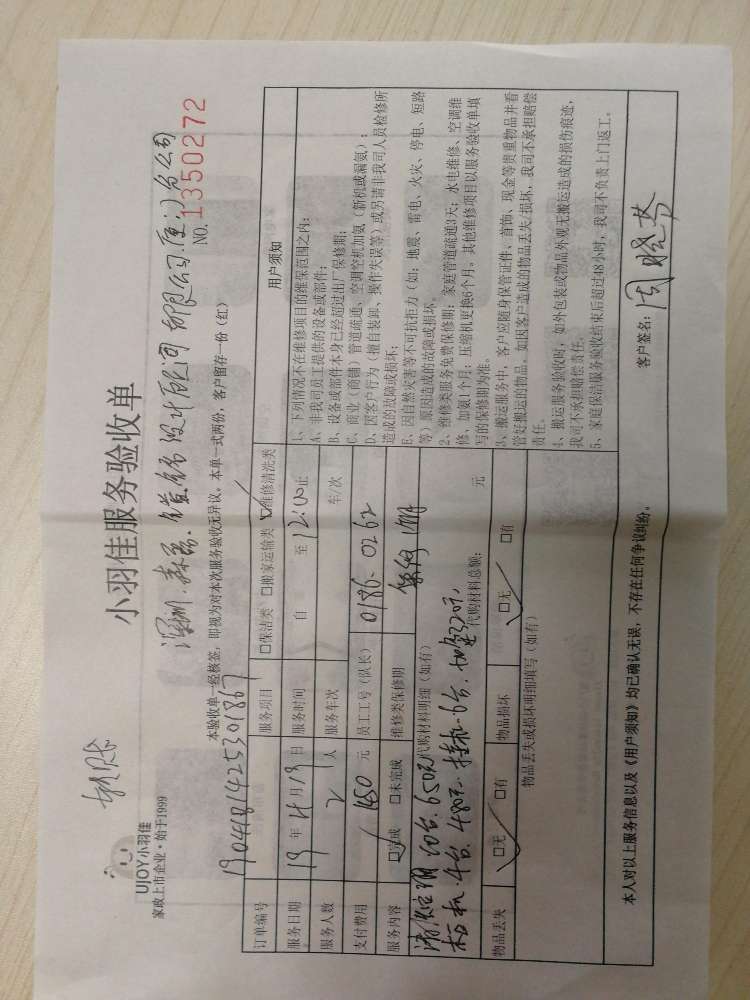 UJOY小羽佳
家政上市企业·始于1999
小羽佳服务验收单
设计顾问有限公司(厦门)分公司
NO.1350272
本验收单一经核签，即视为对本次服务验收无异议。本单一式两份，客户留存一份（红）
订单编号 190418142530186
服务项目 □保洁类 □搬家运输类 ☑维修清洗类
服务日期 19年4月19日 服务时间 自 至 12:00止
服务人数 2人 服务车次 车/次
支付费用 1450元 员工工号(队长) 0186、0262
服务内容 ☑完成 □未完成 维修类保修期
代购材料明细(如有)
10台、650元
柜机、4台、480元、挂机6台、
代购材料总额： 元
物品丢失 ☑无 □有 物品损坏 ☑无 □有
物品丢失或损坏明细填写（如有）
用户须知
1、下列情况不在维修项目的维保范围之内：
A、非我司员工提供的设备或部件；
B、设备或部件本身已经超过出厂保修期；
C、商业（商铺）管道疏通、空调空机加氨（新机或漏氨）；
D、因客户行为（擅自装卸、操作失误等）或另请非我司人员检修所
造成的故障或损坏；
E、因自然灾害等不可抗拒力（如：地震、雷电、火灾、停电、短路
等）原因造成的故障或损坏。
2、维修类服务免费保修期：家庭管道疏通3天；水电维修、空调维
修、加氨1个月；压缩机更换6个月。其他维修项目以服务验收单填
写的保修期为准。
3、搬运服务中，客户应随身保管证件、首饰、现金等贵重物品并看
管好搬运的物品，如因客户造成的物品丢失/损坏，我司不承担赔偿
责任。
4、搬运服务验收时，如外包装或物品外观无搬运造成的损伤痕迹，
我司不承担赔偿责任。
5、家庭保洁服务验收结束后超过48小时，我司不负责上门返工。
本人对以上服务信息以及《用户须知》均已确认无误，不存在任何争议纠纷。
客户签名：周晓芬